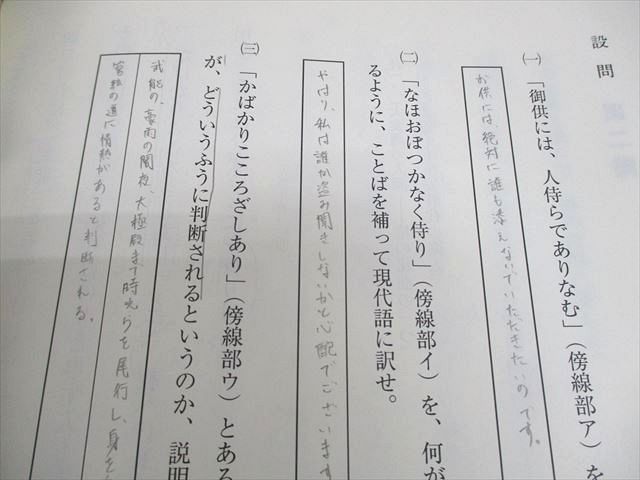 設問
㈠「御供には、人侍らでありなむ」（傍線部ア）を
お供には絶対に誰も添えないでいただきたいのです。
㈡「なほおぼつかなく侍り」（傍線部イ）を、何が
るように、ことばを補って現代語に訳せ。
やはり、私は誰か盗み聞きしないかと心配でございます
㈢「かばかりこころざしあり」（傍線部ウ）とある
が、どういうふうに判断されるというのか、説明
武能の、豪雨の闇夜、大極殿まで時光らを尾行し、身を
管絃の道に情熱があると判断される。